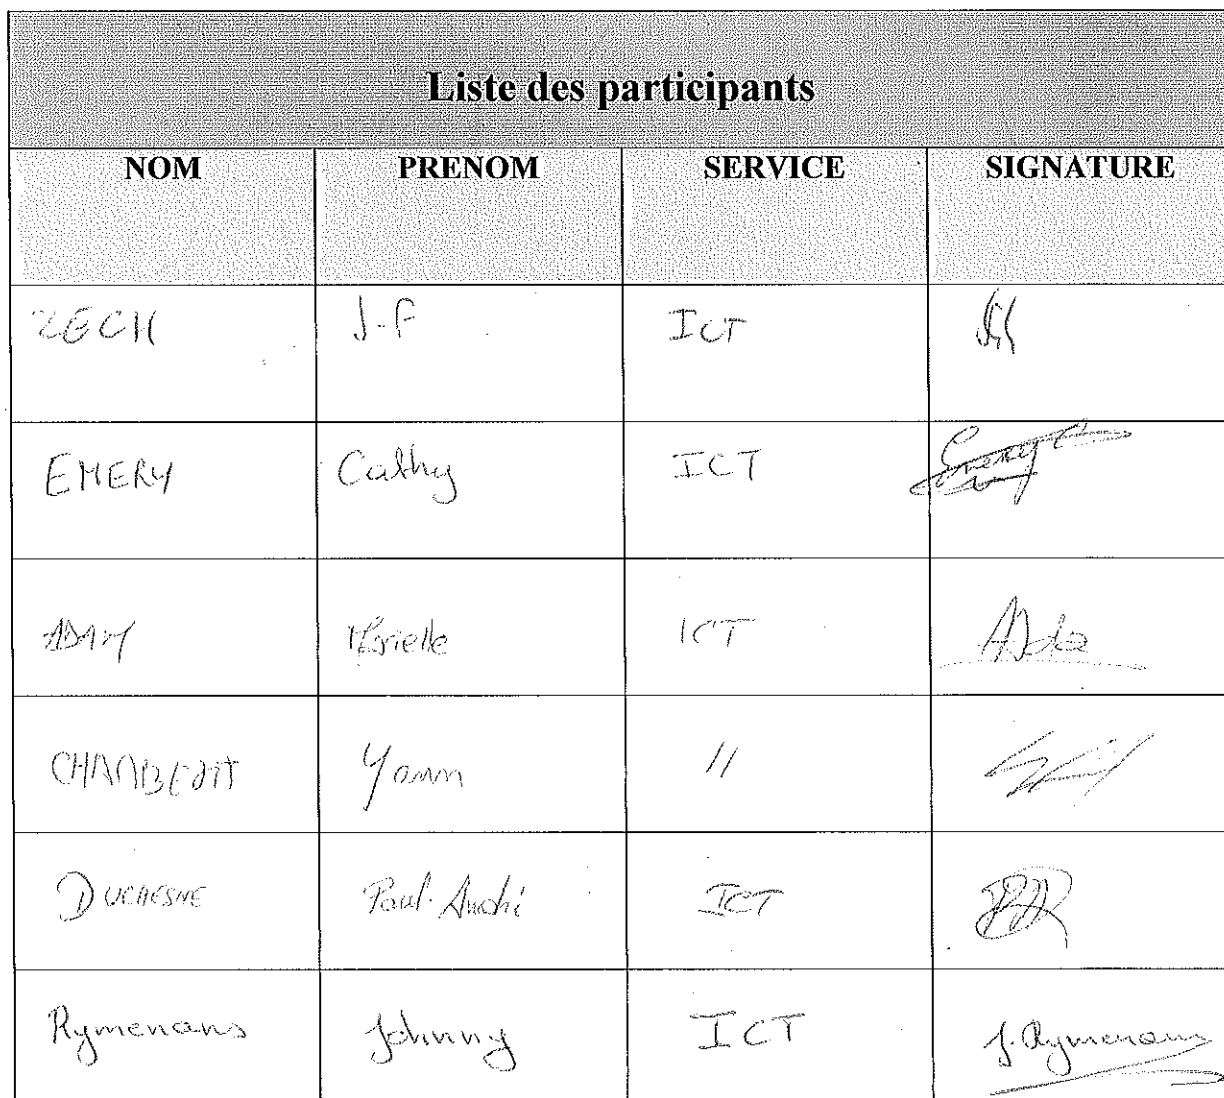 Liste des participants
NOM PRENOM SERVICE SIGNATURE
ZECH J-F ICT
EMERY Cathy ICT Emery
ADAM ICT
Yann //
DUCHESNE Paul-André ICT
Rymenans Johnny ICT J. Rymenans